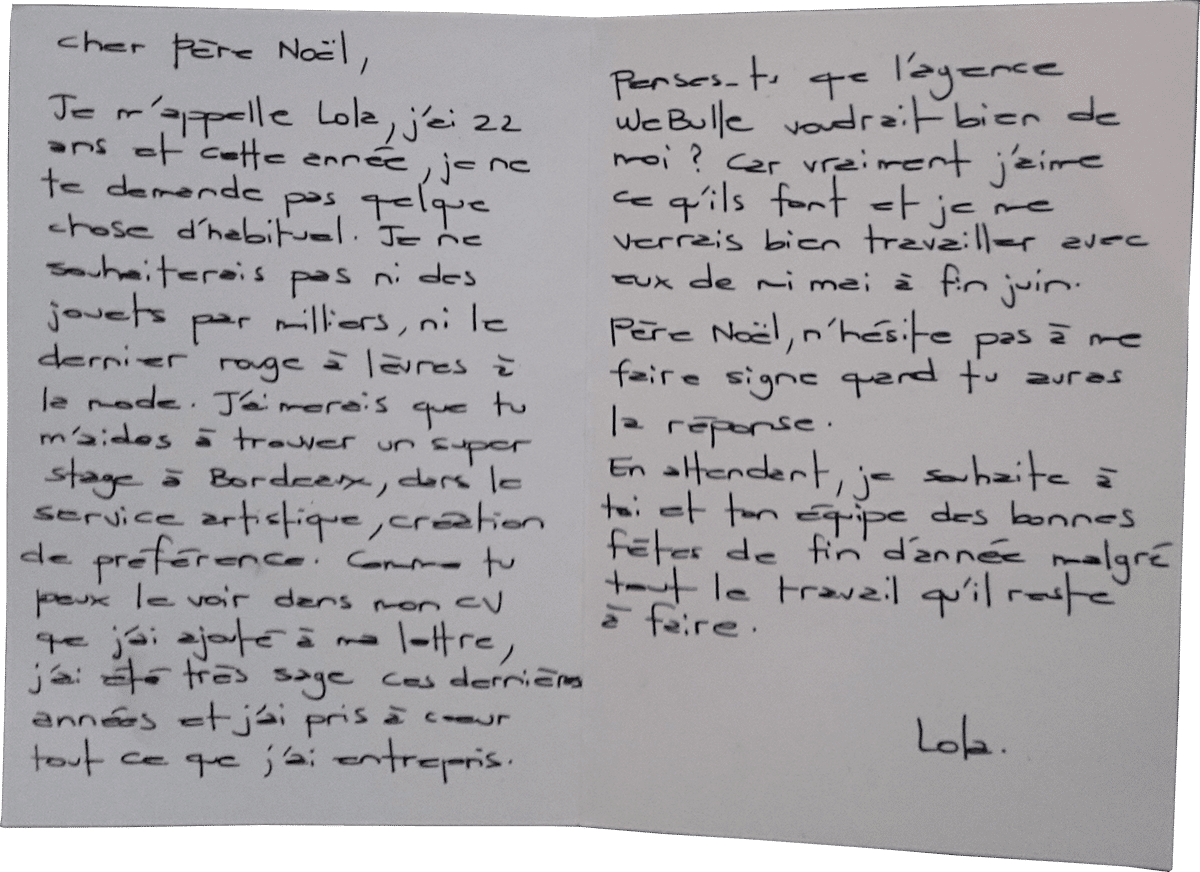 cher Père Noël,
Je m'appelle Lola, j'ai 22
ans et cette année, je ne
te demande pas quelque
chose d'habituel. Je ne
souhaiterais pas ni des
jouets par milliers, ni le
dernier rouge à lèvres à
la mode. J'aimerais que tu
m'aides à trouver un super
stage à Bordeaux, dans le
service artistique, création
de préférence. Comme tu
peux le voir dans mon CV
que j'ai ajouté à ma lettre,
j'ai été très sage ces dernières
années et j'ai pris à cœur
tout ce que j'ai entrepris.
Penses-tu que l'agence
WeBulle voudrait bien de
moi ? Car vraiment j'aime
ce qu'ils font et je me
verrais bien travailler avec
eux de mi mai à fin juin.
Père Noël, n'hésite pas à me
faire signe quand tu auras
la réponse.
En attendant, je souhaite à
toi et ton équipe des bonnes
fêtes de fin d'année malgré
tout le travail qu'il reste
à faire.
Lola.